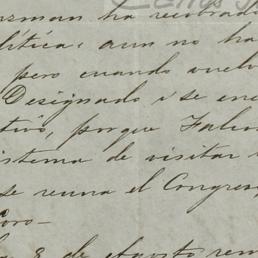 ha recobrado
lítica: aun no ha
pero cuando vuelv
Designado i se enc
tivo, porque Falc
istema de visitar
se reuna el Congres
oro—
8 de Agosto rem